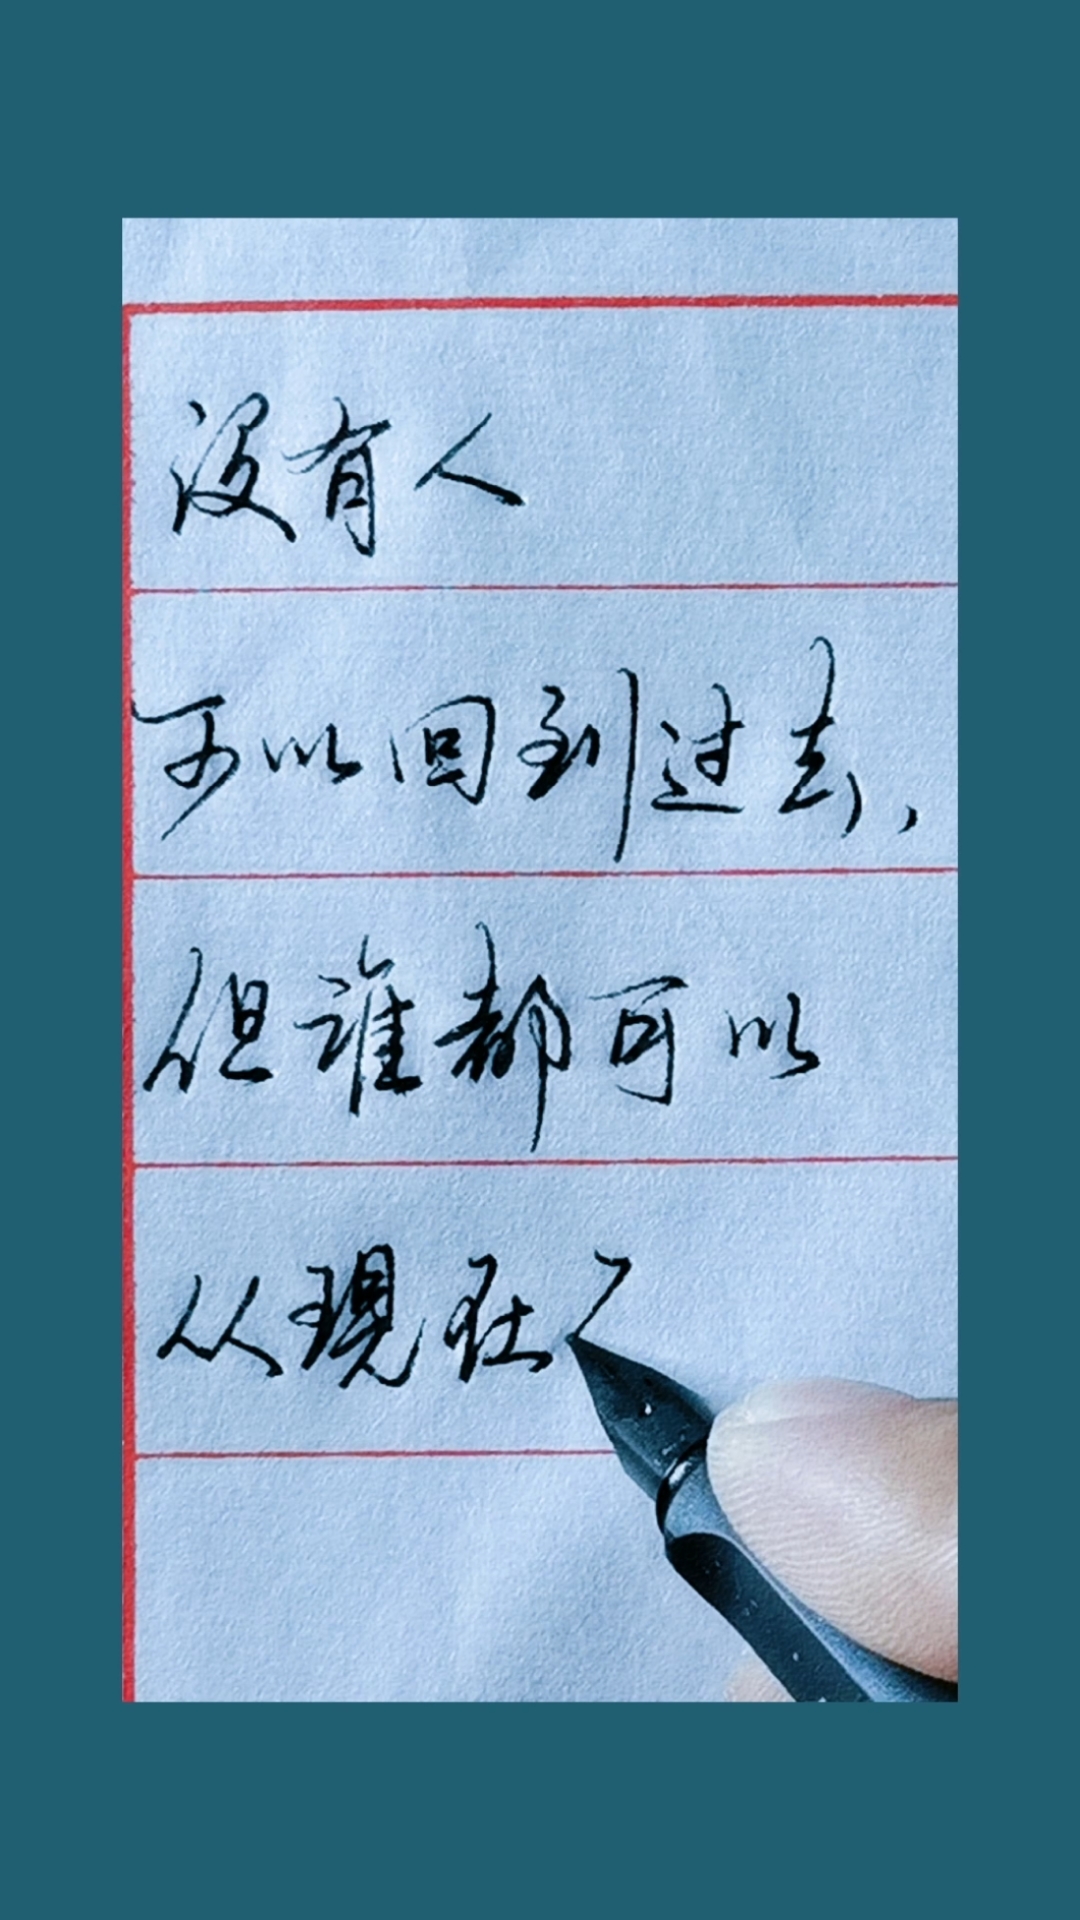 没有人
可以回到过去,
但谁都可以
从現在